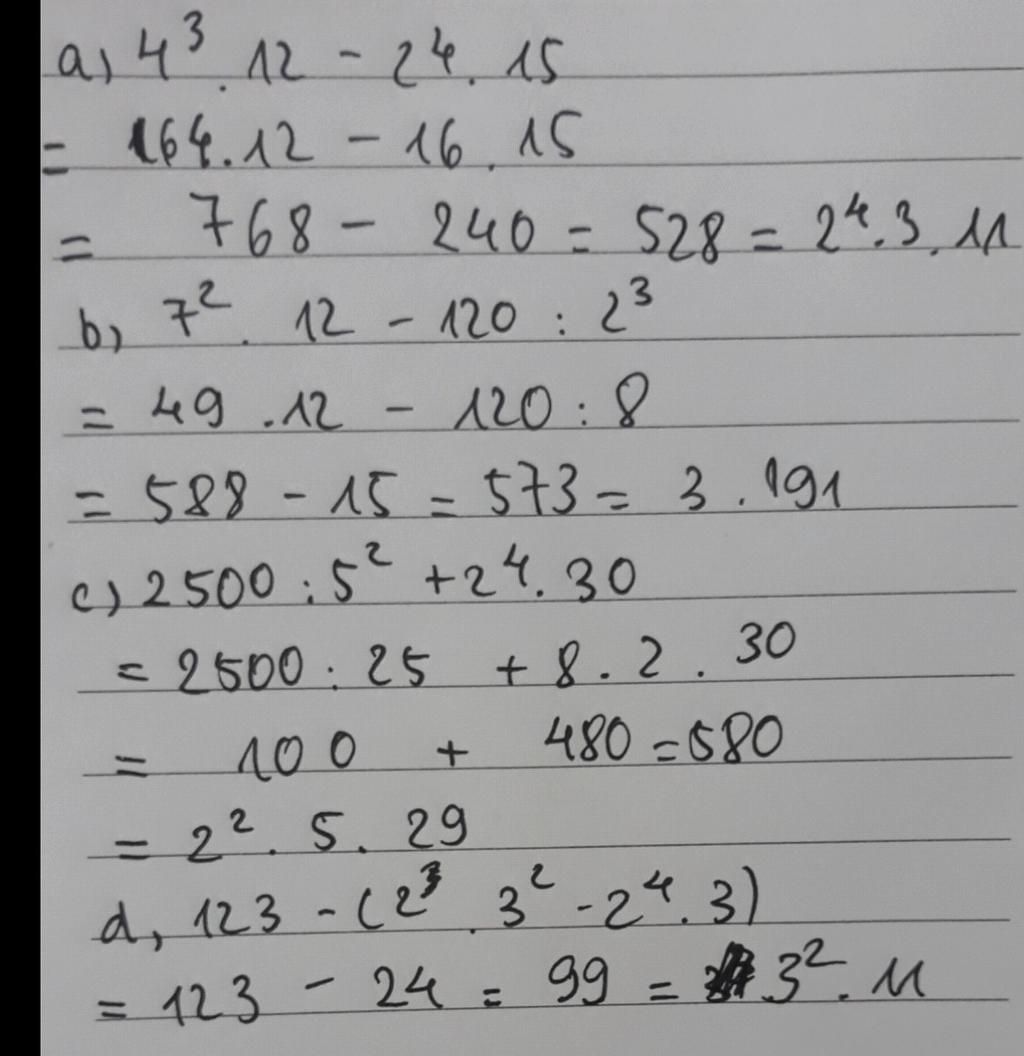 a) 4³ . 12 - 24 . 15
= 164 . 12 - 16 . 15
= 768 - 240 = 528 = 2⁴ . 3 . 11
b) 7² . 12 - 120 : 2³
= 49 . 12 - 120 : 8
= 588 - 15 = 573 = 3 . 191
c) 2500 : 5² + 2⁴ . 30
= 2500 : 25 + 8 . 2 . 30
= 100 + 480 = 580
= 2² . 5 . 29
d, 123 - (2³ . 3² - 2⁴ . 3)
= 123 - 24 = 99 = 3² . 11